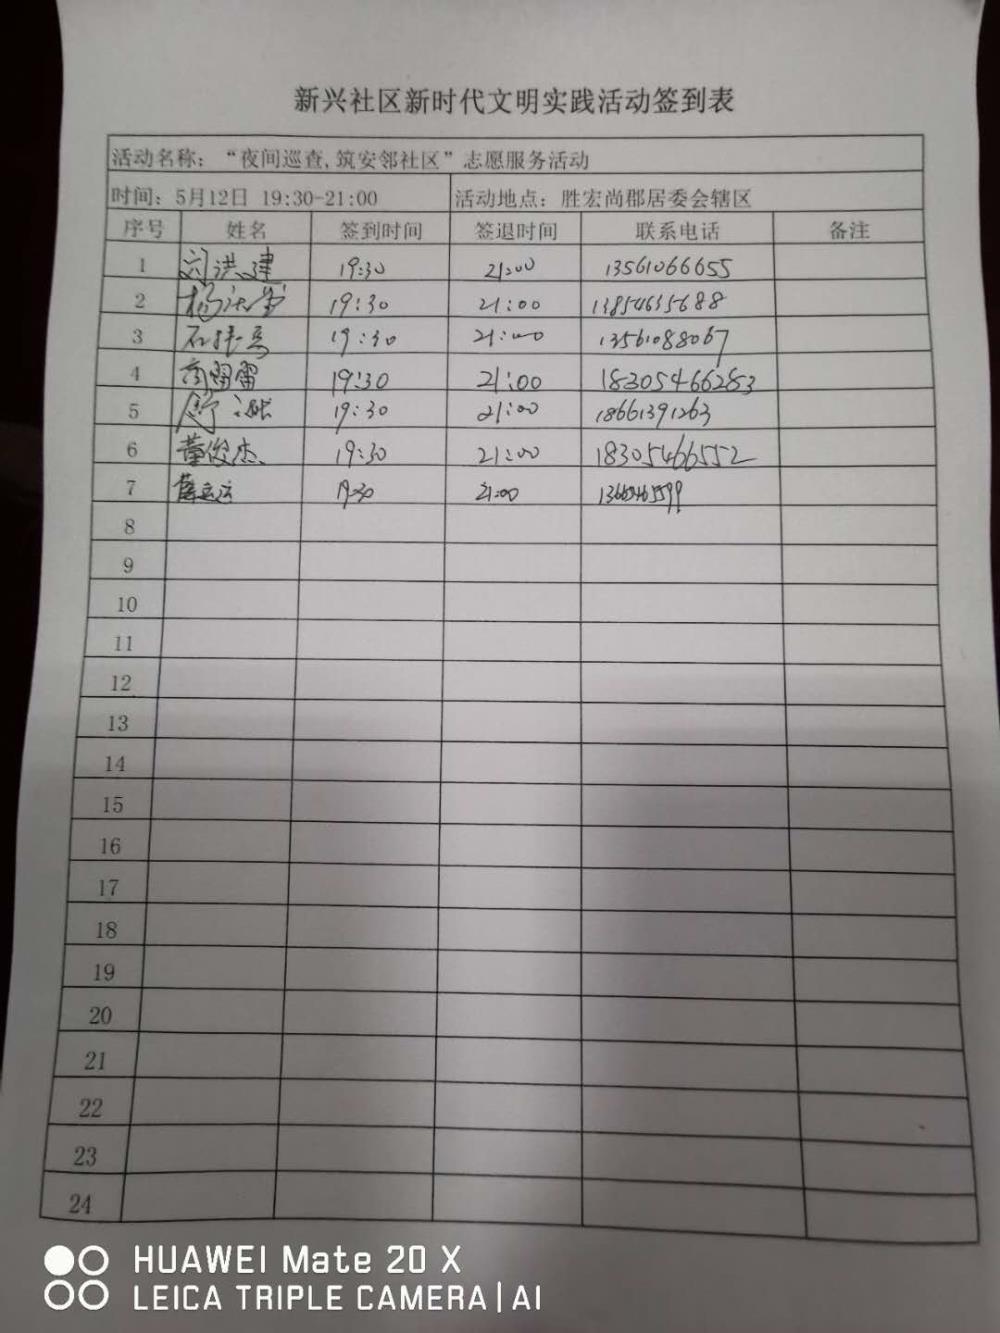 新兴社区新时代文明实践活动签到表
活动名称：“夜间巡查,筑安邻社区”志愿服务活动
时间：5月12日 19:30-21:00 活动地点：胜宏尚郡居委会辖区
序号 姓名 签到时间 签退时间 联系电话 备注
1 闫洪建 19:30 21:00 13561066655
2 19:30 21:00 13854635688
3 19:30 21:00 13561088067
4 商雷雷 19:30 21:00 18305466283
5 19:30 21:00 18661391263
6 董俊杰 19:30 21:00 18305466552
7 19:30 21:00
8
9
10
11
12
13
14
15
16
17
18
19
20
21
22
23
24
HUAWEI Mate 20 X
LEICA TRIPLE CAMERA | AI